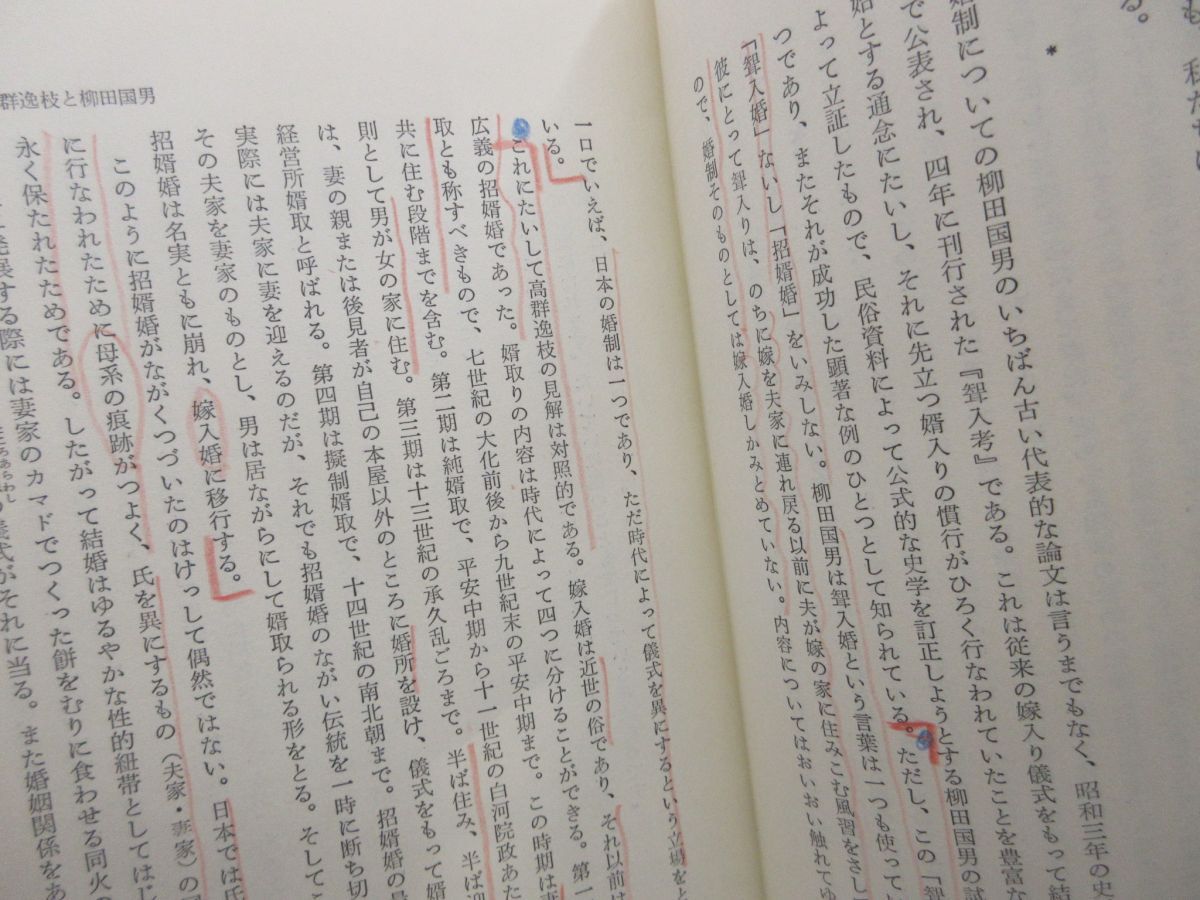 も、私たちに
る。
＊
婚制についての柳田国男のいちばん古い代表的な論文は言うまでもなく、昭和三年の史
で公表され、四年に刊行された『聟入考』である。これは従来の嫁入り儀式をもって結
始とする通念にたいし、それに先立つ婿入りの慣行がひろく行なわれていたことを豊富な
よって立証したもので、民俗資料によって公式的な史学を訂正しようとする柳田国男の試
つであり、またそれが成功した顕著な例のひとつとして知られている。ただし、この「聟
「聟入婚」ないし「招婿婚」をいみしない。柳田国男は聟入婚という言葉は一つも使ってい
彼にとって聟入りは、のちに嫁を夫家に連れ戻る以前に夫が嫁の家に住みこむ風習をさし
ので、婚制そのものとしては嫁入婚しかみとめていない。内容についてはおいおい触れてゆ
群逸枝と柳田国男
一口でいえば、日本の婚制は一つであり、ただ時代によって儀式を異にするという立場をと
いる。
これにたいして高群逸枝の見解は対照的である。嫁入婚は近世の俗であり、それ以前は
広義の招婿婚であった。婿取りの内容は時代によって四つに分けることができる。第一
取とも称すべきもので、七世紀の大化前後から九世紀末の平安中期まで。この時期は妻
共に住む段階までを含む。第二期は純婿取で、平安中期から十一世紀の白河院政あた
則として男が女の家に住む。第三期は十三世紀の承久乱ごろまで。半ば住み、半ば迎
は、妻の親または後見者が自己の本屋以外のところに婚所を設け、儀式をもって婿
経営所婿取と呼ばれる。第四期は擬制婿取で、十四世紀の南北朝まで。招婿婚の最
実際には夫家に妻を迎えるのだが、それでも招婿婚のながい伝統を一時に断ち切
その夫家を妻家のものとし、男は居ながらにして婿取られる形をとる。そしてこ
招婿婚は名実ともに崩れ、嫁入婚に移行する。
このように招婿婚がながくつづいたのはけっして偶然ではない。日本では氏
に行なわれたために母系の痕跡がつよく、氏を異にするもの（夫家・妻家）の
永く保たれたためである。したがって結婚はゆるやかな性的紐帯としてはじ
発展する際には妻家のカマドでつくった餅をむりに食わせる同火の
ろあらわし
儀式がそれに当る。また婚姻関係をあ